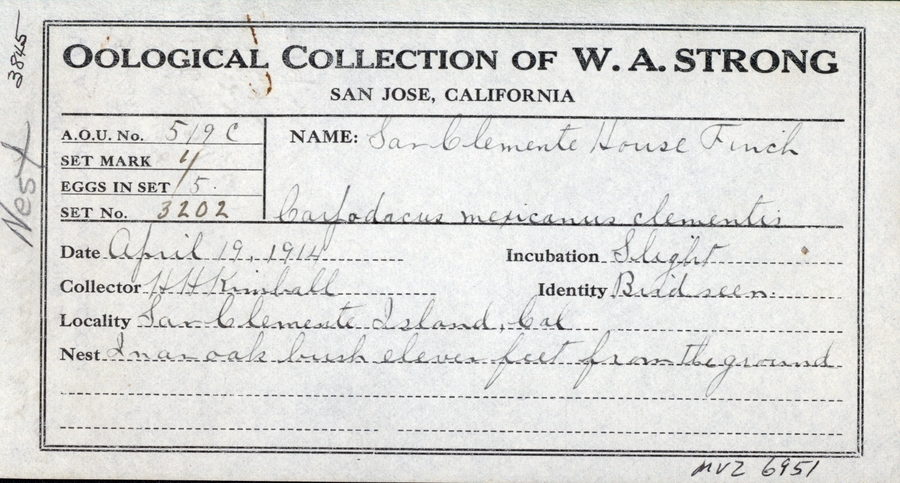 3845
Nest
OOLOGICAL COLLECTION OF W. A. STRONG
SAN JOSE, CALIFORNIA
A.O.U. No. 519 C
SET MARK
EGGS IN SET 5.
SET No. 3202
NAME: San Clemente House Finch
Carpodacus mexicanus clementis
Date April 19, 1914
Incubation Slight
Collector H H Kimball
Identity Bird seen.
Locality San Clemente Island, Cal
Nest In an oak bush eleven feet from the ground
MVZ 6951